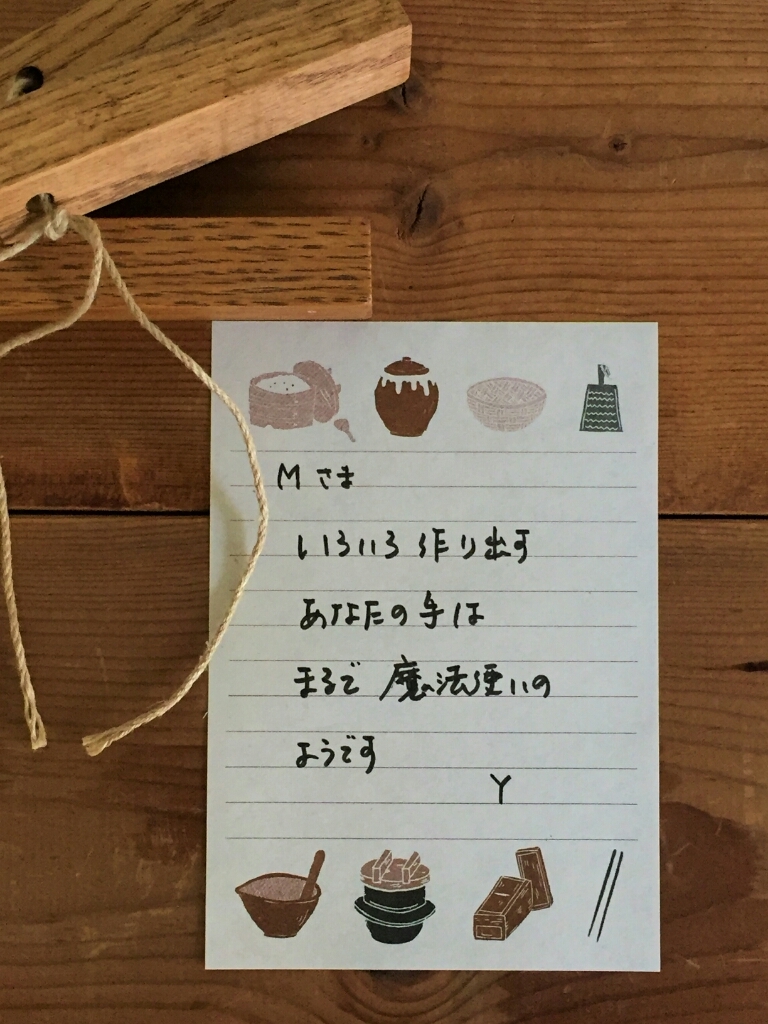 Mさま
いろいろ作り出す
あなたの手は
まるで魔法使いの
ようです
Y